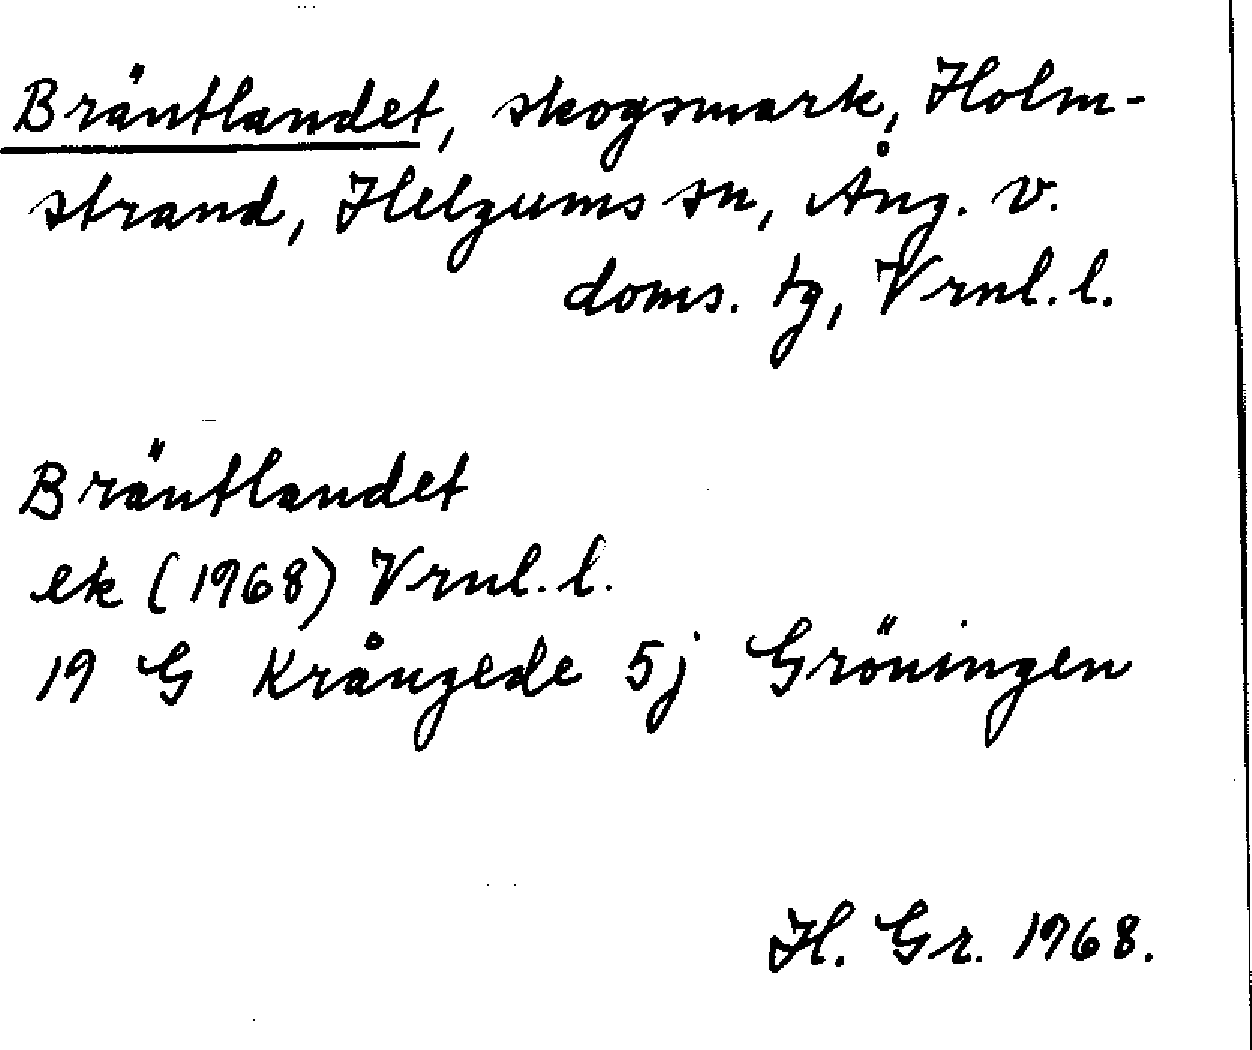 Bräntlandet, skogsmark, Holm-
strand, Helgums sn, Ång. v.
doms. tg, Vrnl. l.
Bräntlandet
ek (1968) Vrnl. l.
19 G Krångede 5j Gröningen
H. Gr. 1968.